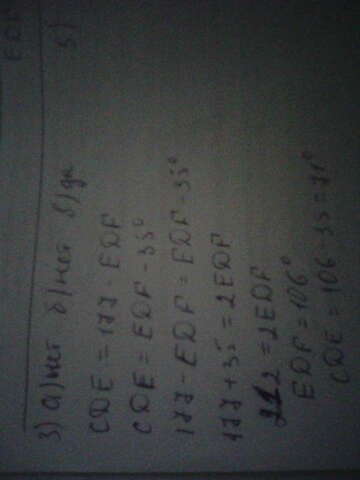 EDF
3) а) нет б) нет в) да
5)
CDE = 177 - EDF
CDE = EDF - 35°
177 - EDF = EDF - 35°
177 + 35 = 2EDF
212 = 2EDF
EDF = 106°
CDE = 106 - 35 = 71°